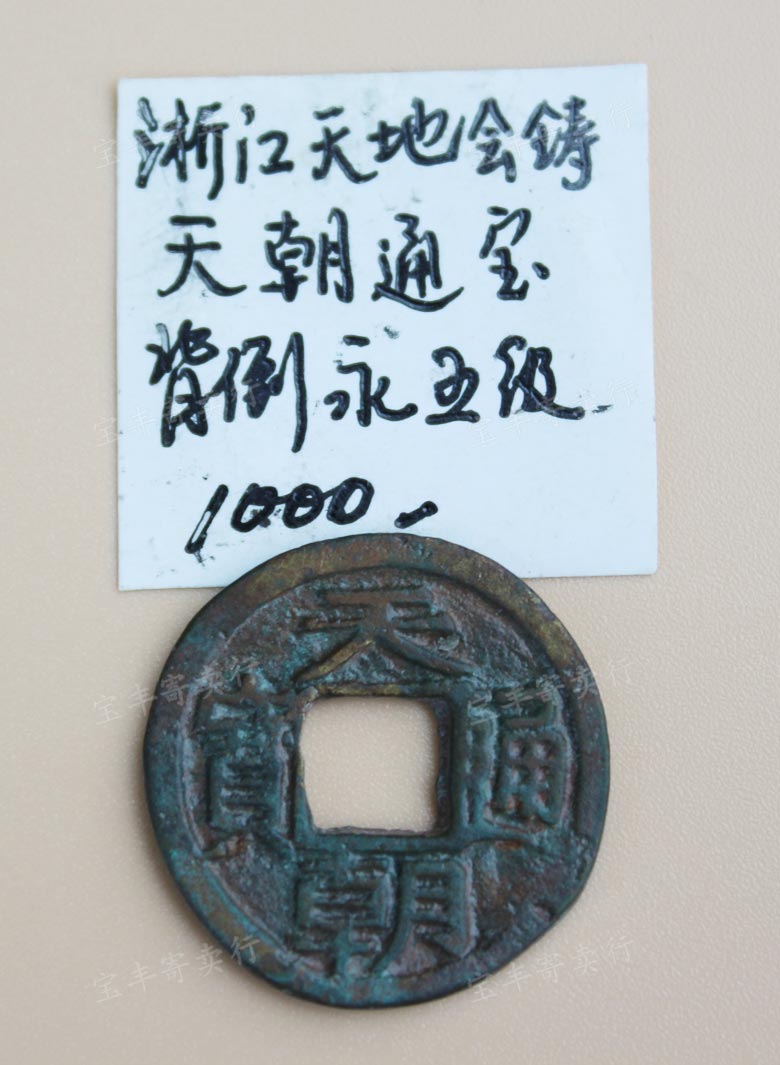 浙江天地会铸
天朝通宝
背倒永五级
1000.
天朝通寳
宝丰寄卖行
宝丰寄卖行
宝丰寄卖行
宝丰寄卖行
宝丰寄卖行
宝丰寄卖行
宝丰寄卖行
宝丰寄卖行